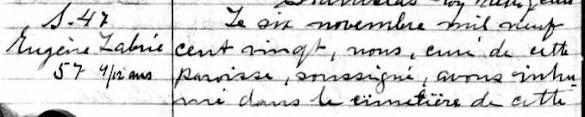 S-47
Eugène Labrie
57 4/12 ans
Le six novembre mil neuf
cent vingt, nous, curé de cette
paroisse, soussigné, avons inhu-
mé dans le cimetière de cette